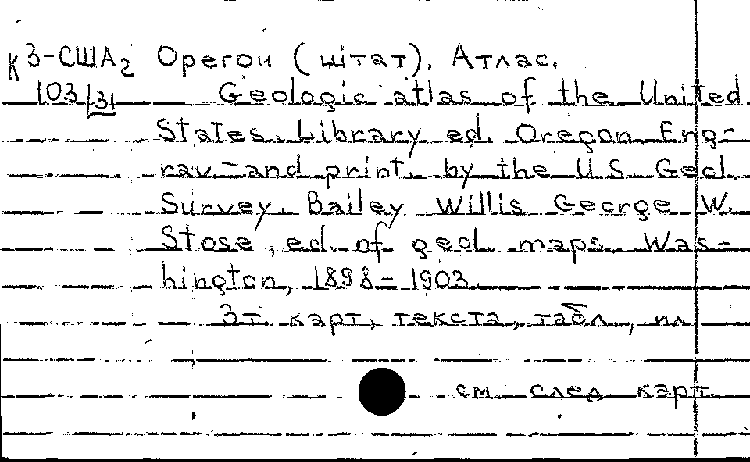 К З-США2 Орегон (штат). Атлас.
103/31 Geologic atlas of the United
States. Library ed. Oregon. Eng-
rav. and print. by the U.S. Geol.
Survey. Bailey Willis George W.
Stose, ed. of geol. maps. Was-
hington, 1898-1903.
3т. карт, текста, табл, ил
см. след карт